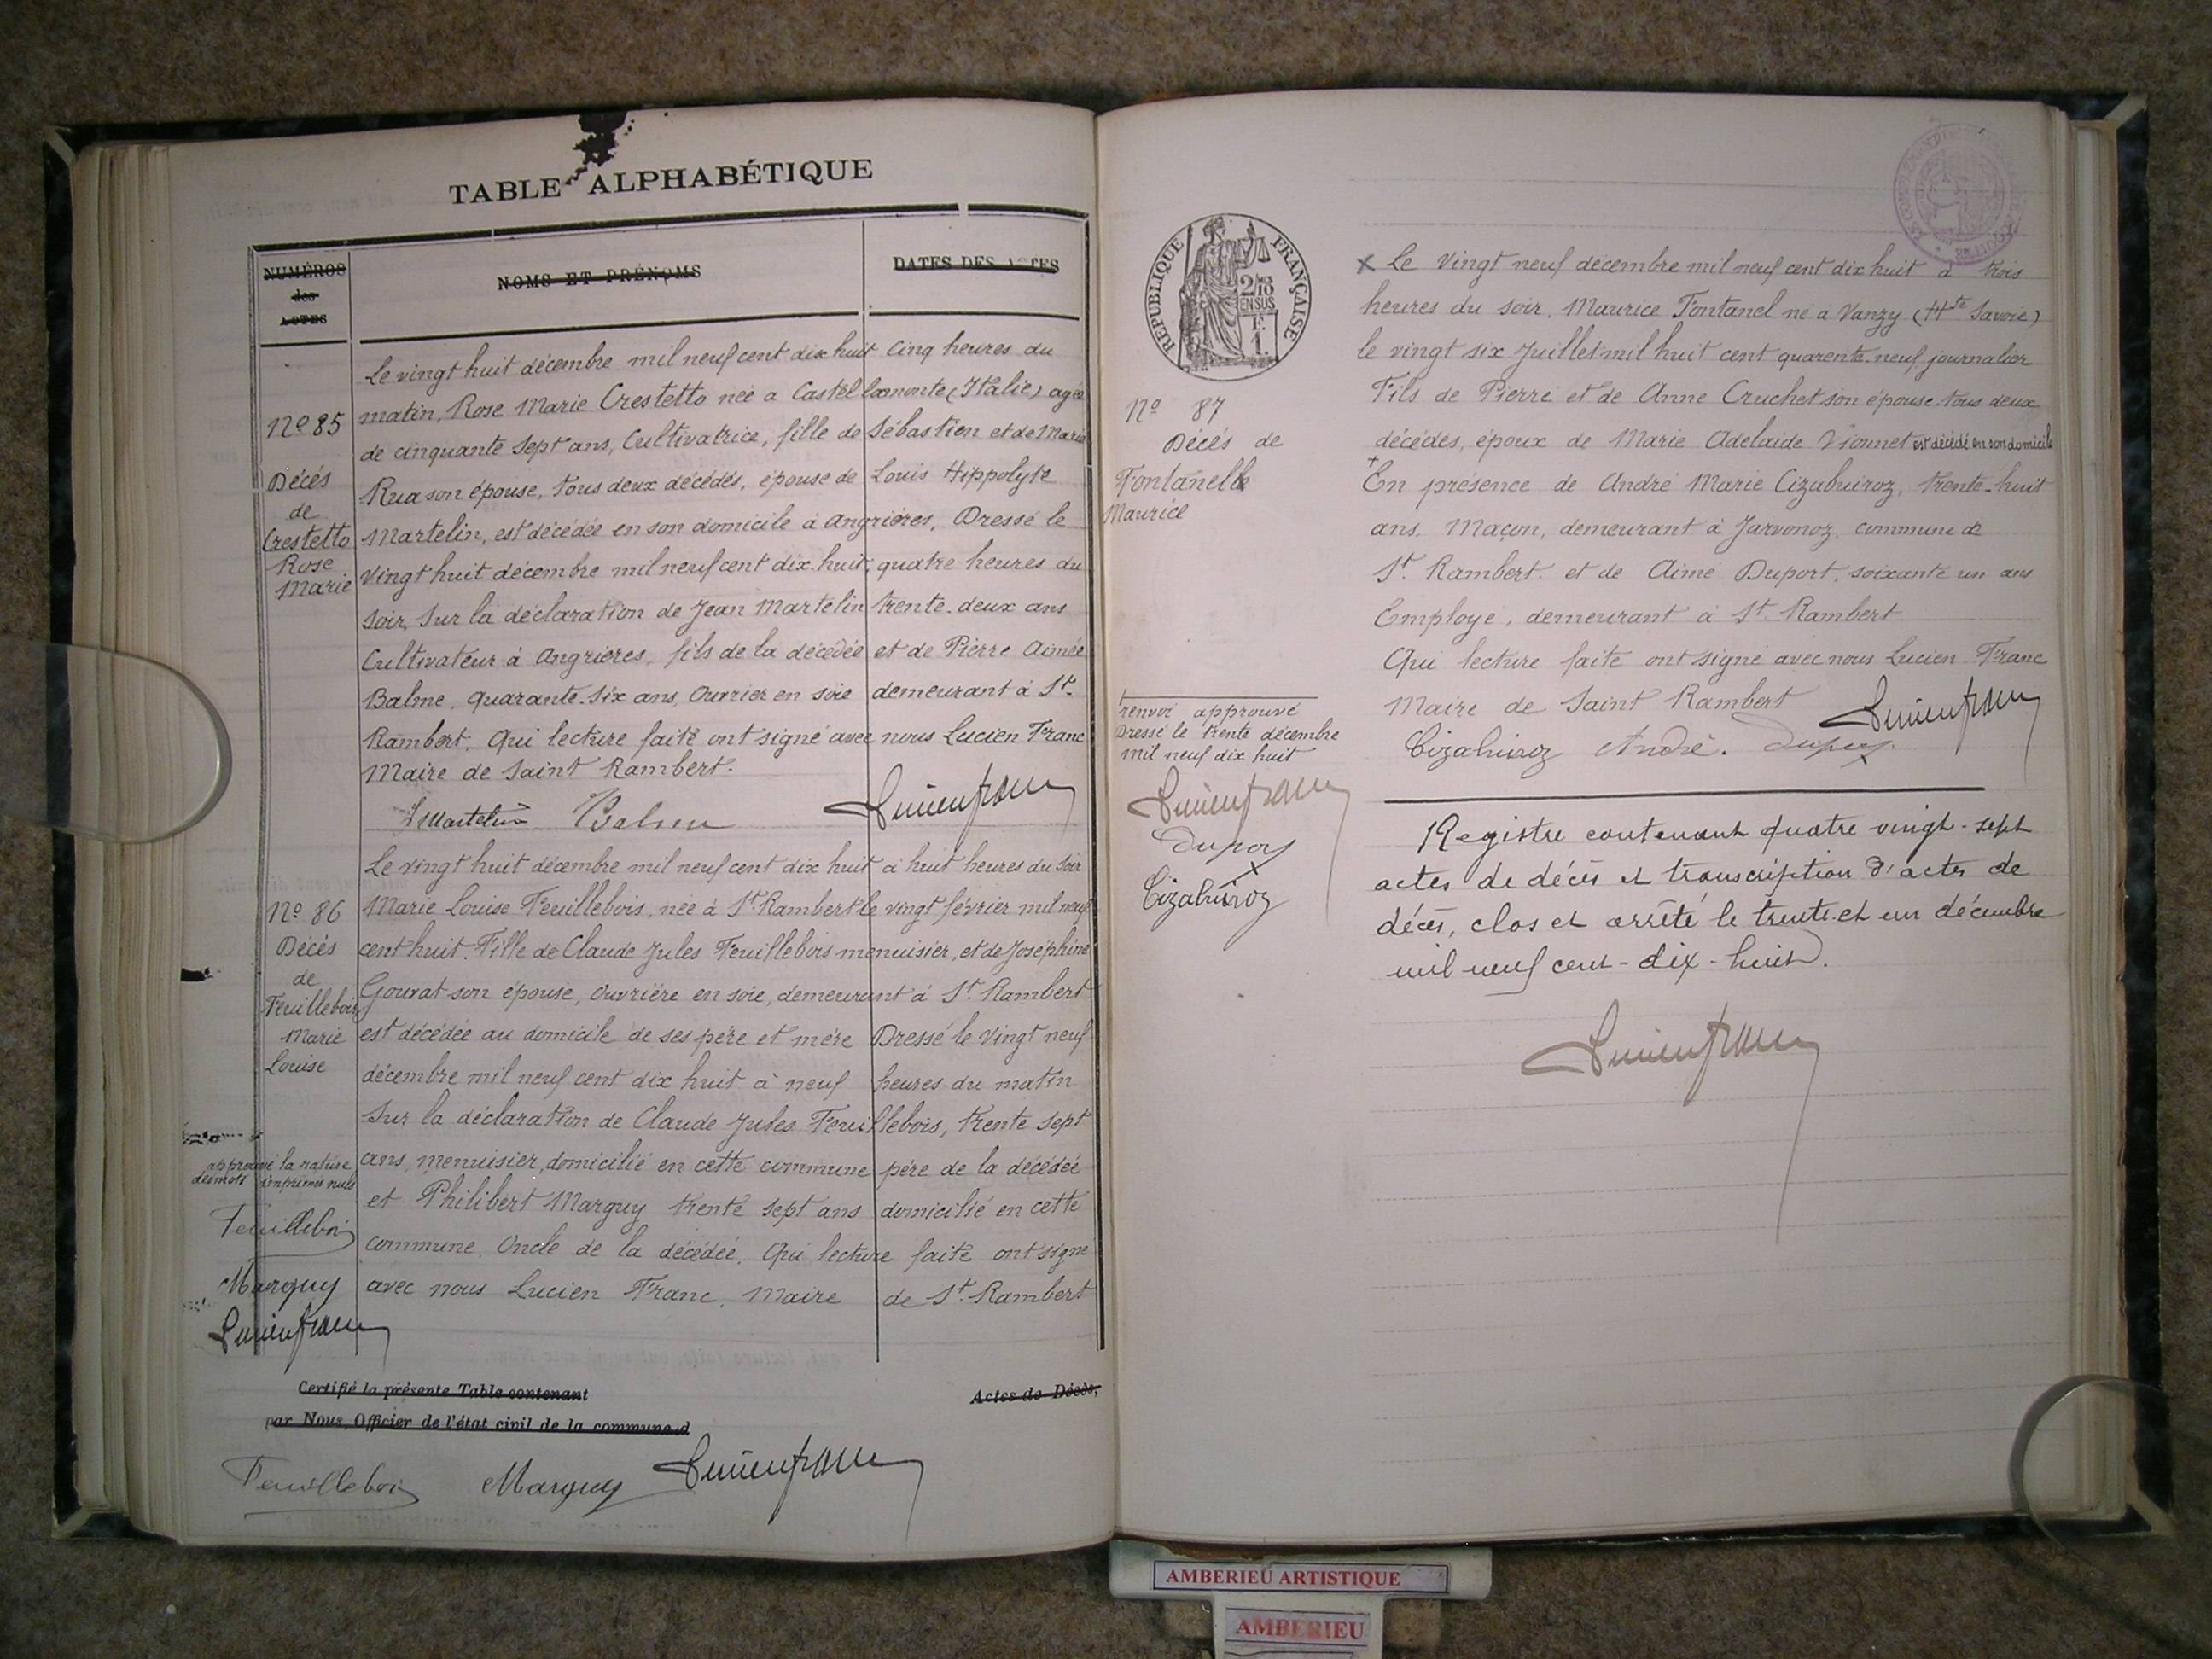 TABLE ALPHABÉTIQUE
NUMÉROS
des
ACTES
NOMS ET PRÉNOMS
DATES DES ACTES
Nº 85
Décés
de
Crestetto
Rose
Marie
Le vingt huit décembre mil neuf cent dix huit cinq heures du
matin, Rose Marie Crestetto née a Castellamonte (Italie) agée
de cinquante sept ans, Cultivatrice, fille de Sébastien et de Marie
Rua son épouse, tous deux décédés, épouse de Louis Hippolyte
Martelin, est décédée en son domicile à Angrières, Dressé le
vingt huit décembre mil neuf cent dix huit, quatre heures du
soir, Sur la déclaration de Jean Martelin trente-deux ans
Cultivateur à Angrières, fils de la décédée et de Pierre Aimée
Balme, quarante-six ans, Ouvrier en soie demeurant à St
Rambert. Qui lecture faite ont signé avec nous Lucien Franc
Maire de Saint Rambert.
J Martelin Balme Lucien franc
Nº 86
Décés
de
Feuillebois
Marie
Louise
Le vingt huit décembre mil neuf cent dix huit à huit heures du soir
Marie Louise Feuillebois, née à St. Rambert le vingt février mil neuf
cent huit. Fille de Claude Jules Feuillebois menuisier, et de Joséphine
Gourat son épouse, Ouvrière en soie, demeurant à St. Rambert
est décédée au domicile de ses père et mère Dressé le vingt neuf
décembre mil neuf cent dix huit à neuf heures du matin
Sur la déclaration de Claude Jules Feuillebois, trente sept
ans, menuisier, domicilié en cette commune père de la décédée
et Philibert Marguy trente sept ans domicilié en cette
commune, Oncle de la décédée, Qui lecture faite ont signé
avec nous Lucien Franc, Maire de St. Rambert
approuvé la rature
des mots imprimés nuls
Feuillebois
Marguy
Lucien franc
Certifié la présente Table contenant Actes de Décès,
par Nous, Officier de l'état civil de la commune d
Feuillebois Marguy Lucien franc
RÉPUBLIQUE FRANÇAISE
2/10
EN SUS
F.
1.
Nº 87
Décés de
Fontanelle
Maurice
x Le vingt neuf décembre mil neuf cent dix huit à trois
heures du soir. Maurice Fontanel né a Vanzy (Hte Savoie)
le vingt six Juillet mil huit cent quarente-neuf, journalier
Fils de Pierre et de Anne Cruchet son épouse tous deux
décédés, époux de Marie Adelaide Vionnet est décédé en son domicile
+
En présence de André Marie Cizabuiroz, trente-huit
ans, Maçon, demeurant à Javornoz, commune de
St. Rambert. et de Aimé Duport, soixante un ans
Employé, demeurant à St. Rambert
Qui lecture faite ont signé avec nous Lucien Franc
Maire de Saint Rambert Lucien franc
Cizabuiroz André. Duport
renvoi approuvé
Dressé le trente décembre
mil neuf dix huit
Lucien franc
Duport
Cizabuiroz
Registre contenant quatre vingt-sept
actes de décès et transcription d'actes de
décès, clos et arrêté le trente et un décembre
mil neuf cent-dix-huit.
Lucien franc
AMBERIEU ARTISTIQUE
AMBERIEU